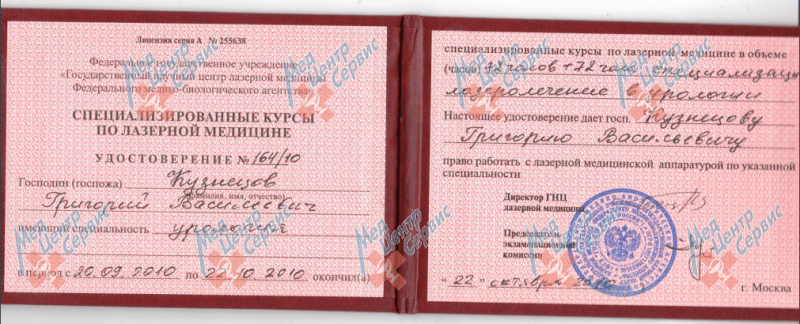 Лицензия серия А № 255638
Федеральное государственное учреждение
«Государственный научный центр лазерной медицины
Федерального медико-биологического агентства»
СПЕЦИАЛИЗИРОВАННЫЕ КУРСЫ
ПО ЛАЗЕРНОЙ МЕДИЦИНЕ
УДОСТОВЕРЕНИЕ № 164/10
Господин (госпожа) Кузнецов
(фамилия, имя, отчество)
Григорий Васильевич
имеющий специальность урология
в период с 20.09.2010 по 22.10.2010 окончил(а)
специализированные курсы по лазерной медицине в объеме
(часов) 72 часов + 72 часа специализация
лазеролечение в урологии
Настоящее удостоверение дает госп. Кузнецову
Григорию Васильевичу
право работать с лазерной медицинской аппаратурой по указанной
специальности
Директор ГНЦ
лазерной медицины
Председатель
экзаменационной
комиссии
"22" октября 2010
г. Москва
Мед Центр Сервис
Мед Центр Сервис
Мед Центр Сервис
Мед Центр Сервис
Мед Центр Сервис
Мед Центр Сервис